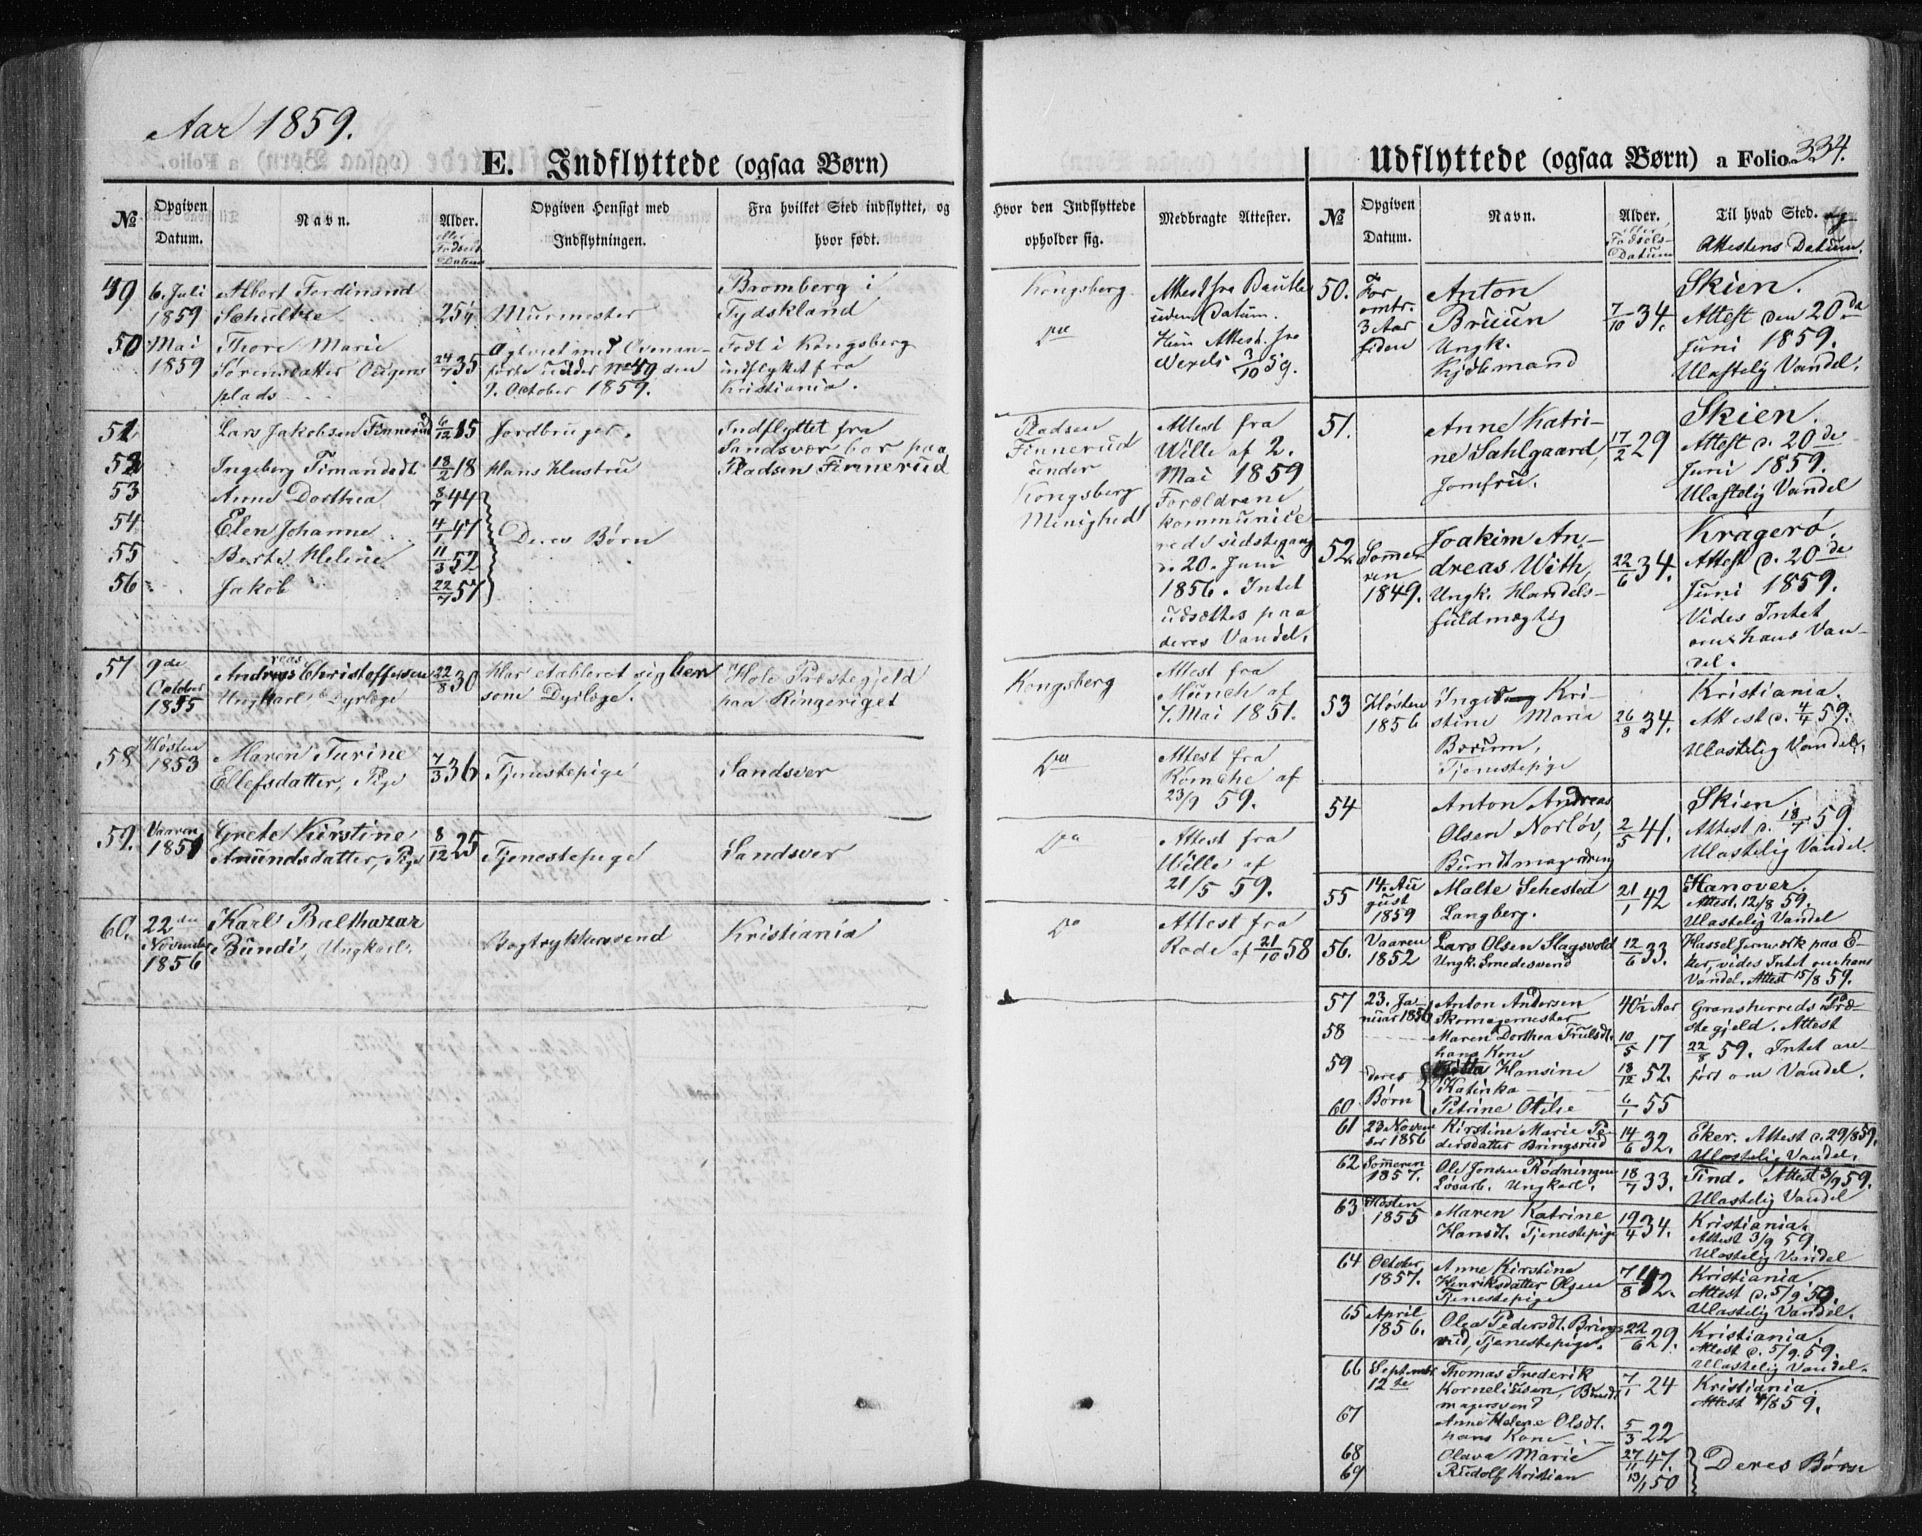 Aar 1859.
E. Indflyttede (ogsaa Børn)
№
Opgiven Datum.
Navn.
Alder.
eller Fødsels-Datum
Opgiven Hensigt med Indflytningen.
Fra hvilket Sted indflyttet, og hvor født.
Hvor den Indflyttede opholder sig.
Medbragte Attester.
49
6. Juli
1859
Albert Ferdinand
Schultze
25¼
Murmester
Bromberg i
Tydskland
Kongsberg
Attest fra
uden Datum.
50
Mai
1859
Thore Marie
Sørensdatter
plads
24/7 35
No 49 den
9. October 1859.
Født i Kongsberg
indflyttet fra
Kristiania.
Do
Hun Attest fra
Wexels 3/10 59.
51
Lars Jakobsen Finnerud
6/12 15
Jordbruger.
Indflyttet fra
Sandsver bor paa
Pladsen Finnerud
Pladsen
Finnerud
under
Kongsberg
Minighed
Attest fra
Wille af 2.
Mai 1859
Forældrene
kommunice
rede sidstegang
d. 20. Juni
1856. Intet
udsættes paa
deres Vandel.
52
Ingeberg Timandsdt
18/2 18
Hans Hustru
53
Anne Dorthea
8/7 44
54
Elen Johanne
4/1 47
Deres Børn
55
Berte Helene
11/3 52
56
Jakob
22/7 57
57
9de
October
1855
Andreas Christoffersen
Ungkarl Dyrlæge
22/8 30
Har etableret sig her
som Dyrlæge.
Hole Præstegjeld
paa Ringeriget
Kongsberg
Attest fra
Münch af
7. Mai 1851.
58
Høsten
1853
Maren Turine
Ellefsdatter, Pige
7/3 36
Tjenestepige
Sandsver
Do
Attest fra
af
23/9 59.
59.
Vaaren
1851
Grete Kirstine
Amundsdatter, Pige
8/12 25
Tjenestepige
Sandsver
Do
Attest fra
Wille af
21/5 59.
60.
22de
November
1856
Karl Balthazar
Bundi, Ungkarl.
Bogtrykkersvend
Kristiania
Do
Attest fra
Rode af 21/10 58
Udflyttede (ogsaa Børn) a Folio 334.
№
Opgiven Datum.
Navn.
Alder.
eller Fødsels-Datum
Til hvad Sted. og
Attestens Datum.
50.
For
omtr.
3 Aar
siden
Anton
Bruun
Ungk.
Kjøbmand
7/10 34.
Skien.
Attest den 20de
Juni 1859.
Ulastelig Vandel.
51.
Anne Katri-
ne Sahlgaard,
Jomfru.
17/2 29
Skien.
Attest d. 20de
Juni 1859.
Ulastelig Vandel
52.
Sommeren
1849.
Joakim An-
dreas With,
Ungk. Handels-
fuldmægtig
22/6 34.
Kragerø.
Attest d. 20de
Juni 1859.
Vides Intet
om hans Van-
del.
53
Høsten
1856
Kri-
stine Marie
Bærum,
Tjenestepige
26/8 34.
Kristiania.
Attest d. 4/4 59.
Ulastelig Vandel.
54
Anton Andreas
Olsen Norløv,
Bundtmagerdreng
2/5 41.
Skien.
Attest d. 18/7 59.
Ulastelig Vandel.
55
14. Au
gust
1859
Malte Sehested
Langberg.
21/1 42
Hanover.
Attest. 12/8 59.
Ulastelig Vandel
56.
Vaaren
1852
Lars Olsen Slagsvold
Ungk. Smedesvend
12/6 33.
Hassel Jernværk paa E-
ker, vides Intet om hans
Vandel. Attest 15/8 59.
57
23. Ja-
nuar 1856
Anton Andersen
Skomagermester
40½ Aar
Gransherreds Præ-
stegjeld. Attest
22/8 59. Intet an-
ført om Vandel.
58
Maren Dorthea Trulsdt.
hans Kone
10/5 17
59
deres
Børn
Hansine
Katinka
18/12 52.
60
Petrine Otilie
6/1 55
61
23 Novem
ber 1856
Kirstine Marie Pe-
dersdatter Bringsrud
14/6 32.
Eker. Attest d. 29/8 59.
Ulastelig Vandel.
62
Sommeren
1857.
Ole Jonsen Rødningen
Løsarb. Ungkarl.
18/7 33.
Tind. Attest 3/9 59.
Ulastelig Vandel
63
Høsten
1855
Maren Katrine
Hansdt. Tjenestepige
19/4 34.
Kristiania.
Attest 3/9 59.
Ulastelig Vandel
64
October
1857.
Anne Kirstine
Henriksdatter Olsen
Tjenestepige
7/8 42.
Kristiania.
Attest d. 5/9 59.
Ulastelig Vandel.
65
April
1856.
Olea Pedersdt. Brings
rud, Tjenestepige.
22/6 29.
Kristiania.
Attest d. 5/9. 59.
Ulastelig Vandel.
66
September
12te
Thomas Frederik
Korneliusen, Bundt
magersvend
7/1 24
Kristiania.
Attest 4/8 59.
67
Anne Helene Olsdt.
hans Kone
5/3 22
68
Olava Marie
27/11 47.
Deres Børn
69
Rudolf Kristian
13/1 50